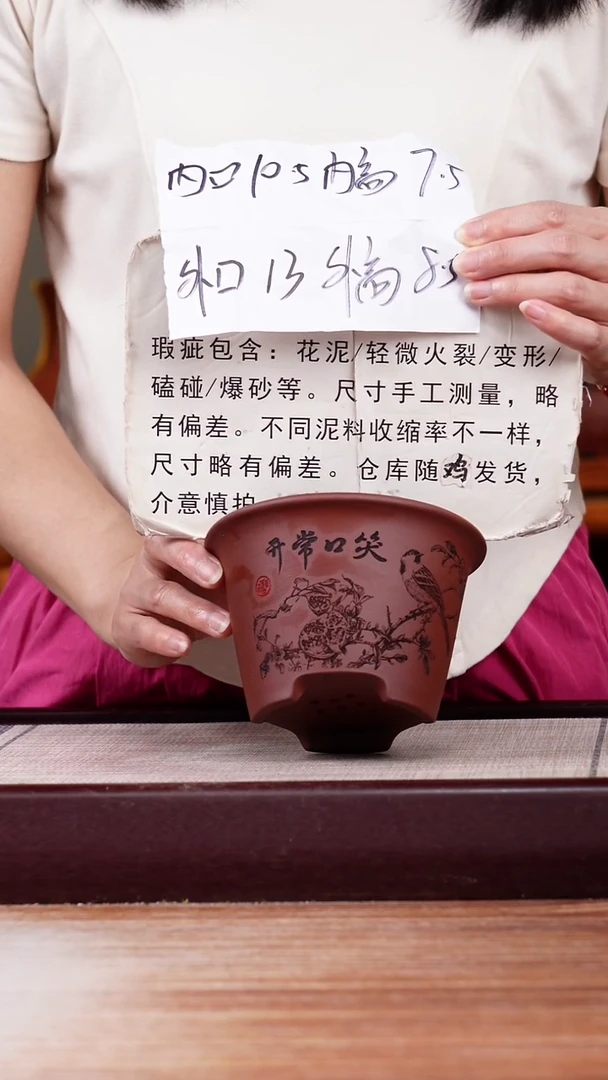 内口10.5内高7.5
外口13外高8.5
瑕疵包含：花泥/轻微火裂/变形/
磕碰/爆砂等。尺寸手工测量，略
有偏差。不同泥料收缩率不一样，
尺寸略有偏差。仓库随鸡发货，
介意慎拍
开常口笑